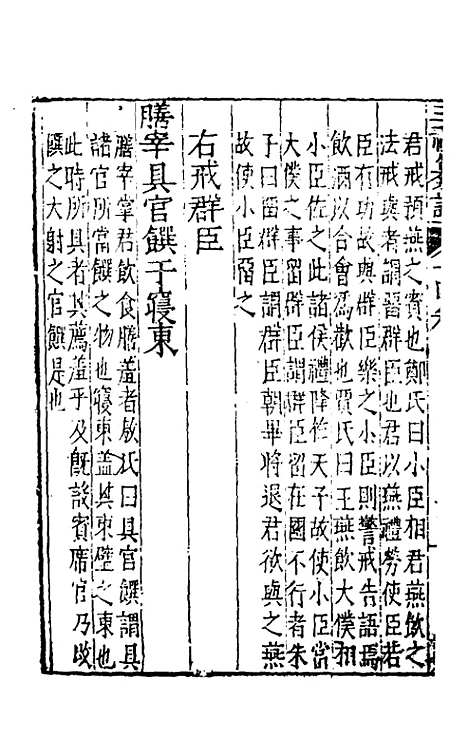 君戒預燕之賓也鄭氏曰小臣相君燕飲之
法戒與者謂㽞群臣也君以燕禮勞使臣若
臣有功故與群臣樂之小臣則警戒告語焉
飲酒以合會為歡也賈氏曰王燕飲大僕相
小臣佐之此諸侯禮降於天子故使小臣當
大僕之事㽞群臣謂群臣㽞在國不行者朱
子曰㽞群臣謂群臣朝畢將退君欲與之燕
故使小臣㽞之
右戒群臣
膳宰具官饌于寢東
膳宰掌君飲食膳羞者敖氏曰具官饌謂具
諸官所當饌之物也寢東盖其東壁之東也
此時所具者其薦羞乎及旣設賓席官乃改
饌之大射之官饌是也